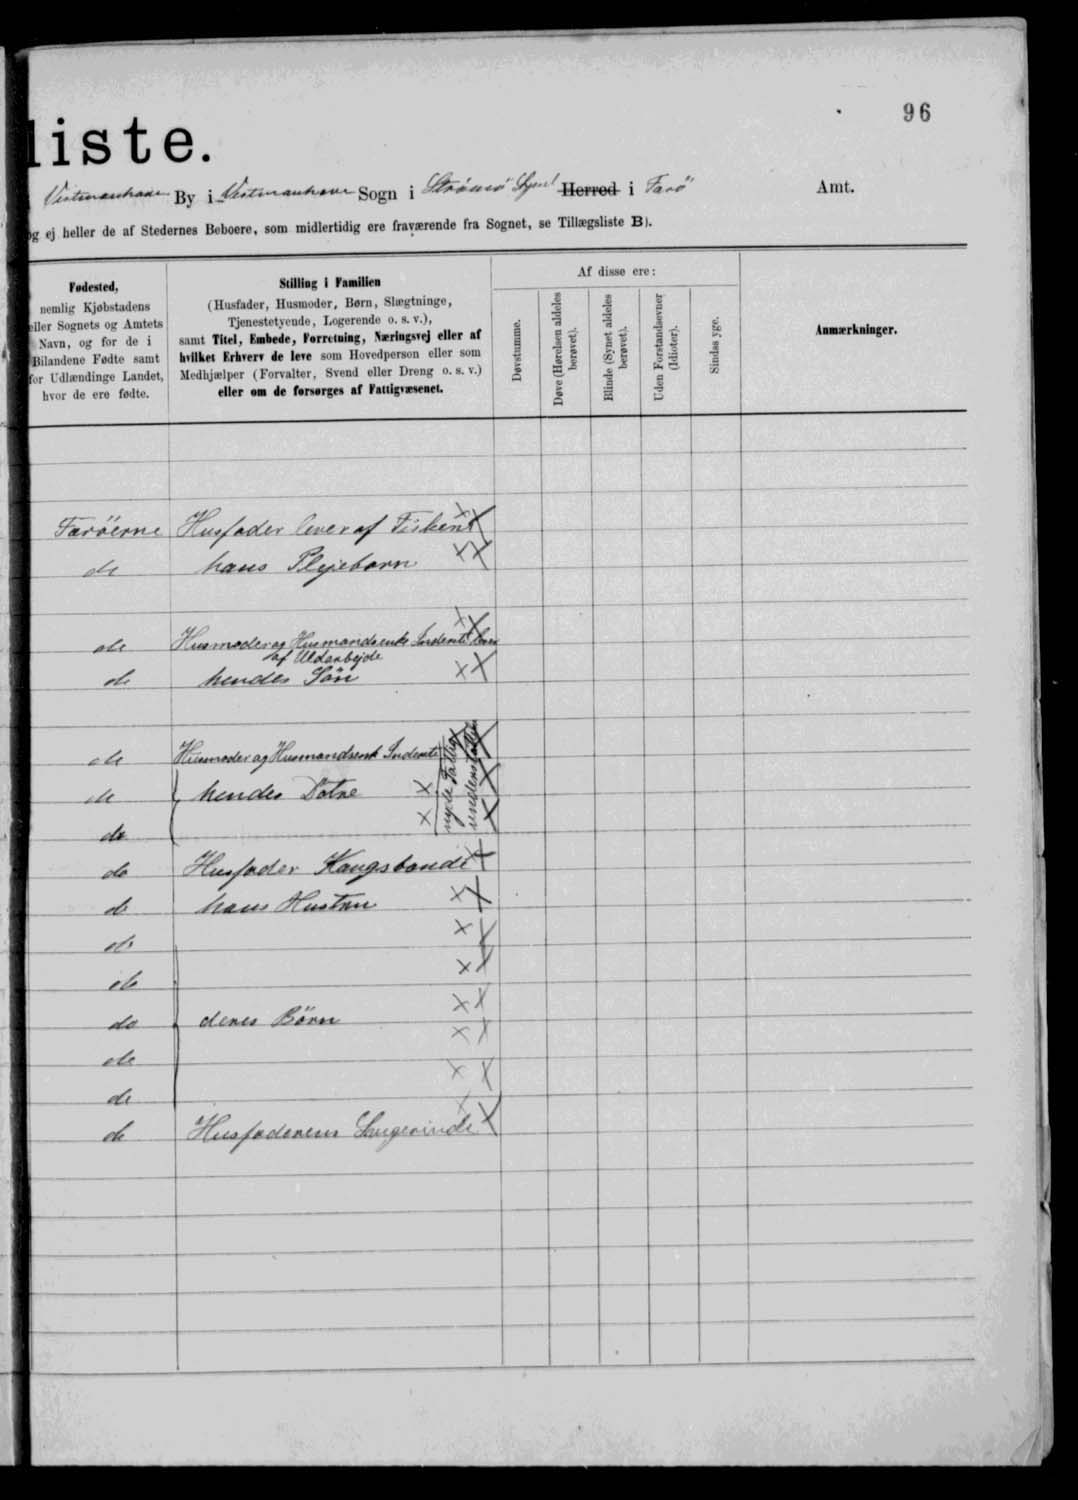 96
liste.
Vestmanhavn By i Vestmanhavn Sogn i Strömö Syssel Herred i Farö Amt.
og ej heller de af Stedernes Beboere, som midlertidig ere fraværende fra Sognet, se Tillægsliste B).
Fødested,
nemlig Kjøbstadens
eller Sognets og Amtets
Navn, og for de i
Bilandene Fødte samt
for Udlændinge Landet,
hvor de ere fødte.
Stilling i Familien
(Husfader, Husmoder, Børn, Slægtninge,
Tjenestetyende, Logerende o. s. v.),
samt Titel, Embede, Forretning, Næringsvej eller af
hvilket Erhverv de leve som Hovedperson eller som
Medhjælper (Forvalter, Svend eller Dreng o. s. v.)
eller om de forsørges af Fattigvæsenet.
Af disse ere:
Døvstumme.
Døve (Hørelsen aldeles
berøvet).
Blinde (Synet aldeles
berøvet).
Uden Forstandsevner
(Idioter).
Sindssyge.
Anmærkninger.
Faröerne Husfader lever af Fiskeri
do hans Plejebarn
do Husmoder og Husmandsenke Inderste lever
af Uldarbejde
do hendes Sön
do Husmoder og Husmandsenk Inderste
do hendes Døtre
do
nyde Fattig
understøttelse
do Husfader Kongsbonde
do hans Hustru
do
do
do deres Börn
do
do
do Husfaderens